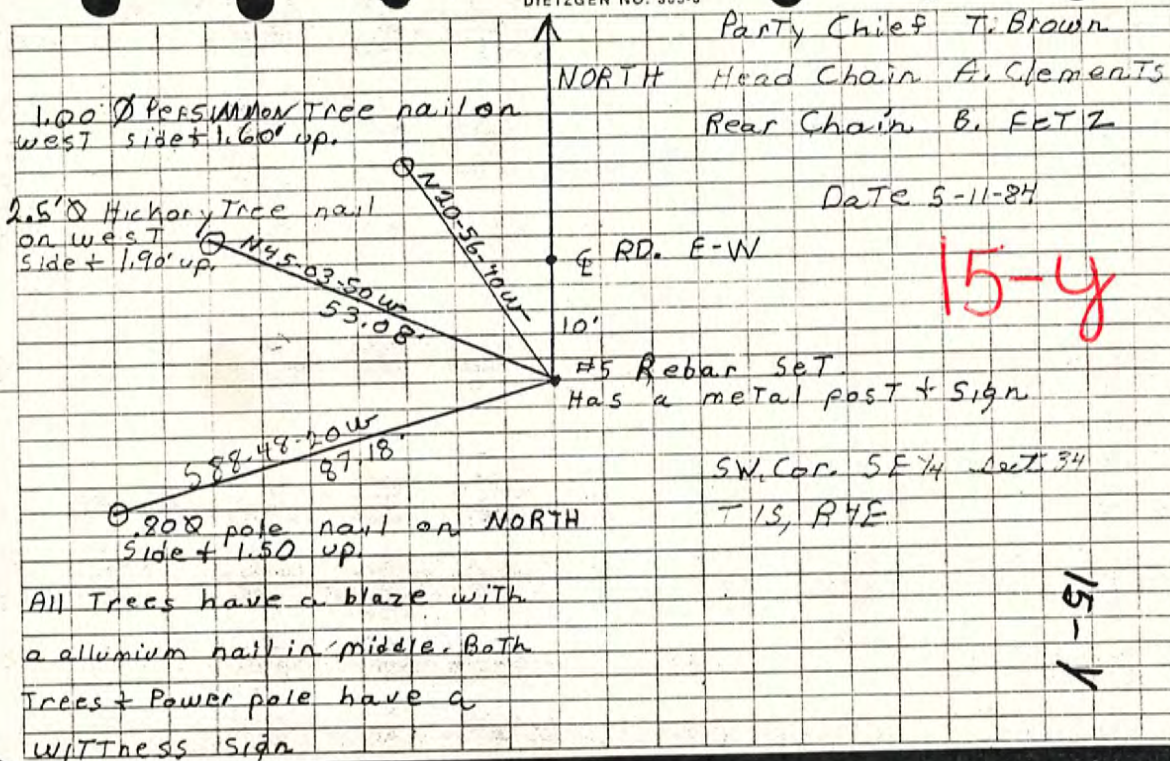 Party Chief T. Brown
NORTH Head Chain A. Clements
Rear Chain B. Fetz
1.00' Ø Persimmon Tree nail on
west side + 1.60' up.
Date 5-11-84
2.5' Ø Hickory Tree nail
on west
side + 1.90' up.
N20-56-40W
N45-03-50W
53.08'
℄ RD. E-W
15-Y
10'
#5 Rebar Set.
Has a metal post + sign
S88-48-20W
87.18'
SW. Cor. SE 1/4 Sect. 34
T1S, R4E
.80 Ø pole nail on NORTH
side + 1.50 up
All Trees have a blaze with
a allumium nail in middle. Both
Trees + Power pole have a
Witthess Sign
15-Y